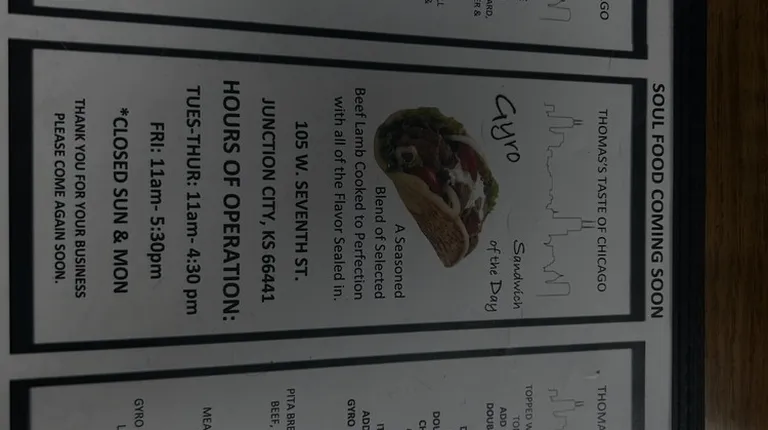 SOUL FOOD COMING SOON
THOMAS'S TASTE OF CHICAGO
Gyro
Sandwich
of the Day
A Seasoned
Blend of Selected
Beef Lamb Cooked to Perfection
with all of the Flavor Sealed in.
105 W. SEVENTH ST.
JUNCTION CITY, KS 66441
HOURS OF OPERATION:
TUES-THUR: 11am- 4:30 pm
FRI: 11am- 5:30pm
*CLOSED SUN & MON
THANK YOU FOR YOUR BUSINESS
PLEASE COME AGAIN SOON.
TOPPED
ADD
PITA
BEEF,
GYRO
GYRO